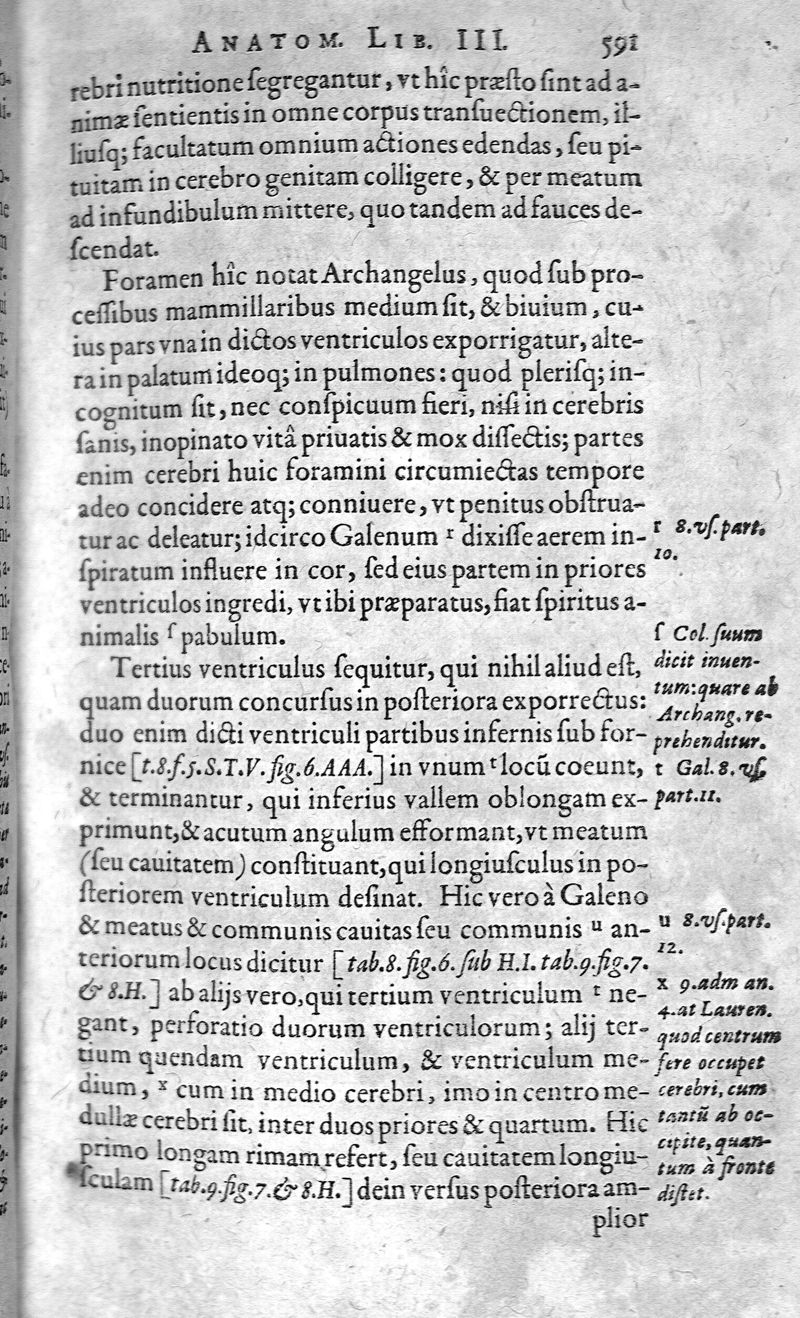 ANATOM. LIB. III. 591
rebri nutritione ſegregantur, vt hîc præſto ſint ad a-
nimæ ſentientis in omne corpus tranſuectionem, il-
liuſq; facultatum omnium actiones edendas, ſeu pi-
tuitam in cerebro genitam colligere, & per meatum
ad infundibulum mittere, quo tandem ad fauces de-
ſcendat.
Foramen hîc notat Archangelus, quod ſub pro-
ceſſibus mammillaribus medium ſit, & biuium, cu-
ius pars vna in dictos ventriculos exporrigatur, alte-
ra in palatum ideoq; in pulmones: quod pleriſq; in-
cognitum ſit, nec conſpicuum fieri, niſi in cerebris
ſanis, inopinato vitâ priuatis & mox diſſectis; partes
enim cerebri huic foramini circumiectas tempore
adeo concidere atq; conniuere, vt penitus obſtrua-
tur ac deleatur; idcirco Galenum r dixiſſe aerem in-
ſpiratum influere in cor, ſed eius partem in priores
ventriculos ingredi, vt ibi præparatus, fiat ſpiritus a-
nimalis ſ pabulum.
Tertius ventriculus ſequitur, qui nihil aliud eſt,
quam duorum concurſus in poſteriora exporrectus:
duo enim dicti ventriculi partibus infernis ſub for-
nice [t.8.f.5.S.T.V.fig.6.AAA.] in vnum t locũ coeunt,
& terminantur, qui inferius vallem oblongam ex-
primunt, & acutum angulum efformant, vt meatum
(ſeu cauitatem) conſtituant, qui longiuſculus in po-
ſteriorem ventriculum deſinat. Hic vero à Galeno
& meatus & communis cauitas ſeu communis u an-
teriorum locus dicitur [tab.8.fig.6.ſub H.I.tab.9.fig.7.
& 8.H.] ab alijs vero, qui tertium ventriculum t ne-
gant, perforatio duorum ventriculorum; alij ter-
tium quendam ventriculum, & ventriculum me-
dium, x cum in medio cerebri, imo in centro me-
dullæ cerebri ſit, inter duos priores & quartum. Hic
primo longam rimam refert, ſeu cauitatem longiu-
ſculam [tab.9.fig.7.& 8.H.] dein verſus poſteriora am-
plior
r 8.vſ.part.
10.
ſ Col. ſuum
dicit inuen-
tum: quare ab
Archang. re-
prehenditur.
t Gal.8.vſ.
part.11.
u 8.vſ.part.
12.
x 9.adm an.
4.at Lauren.
quod centrum
fere occupet
cerebri, cum
tantũ ab oc-
cipite, quan-
tum à fronte
diſtet.